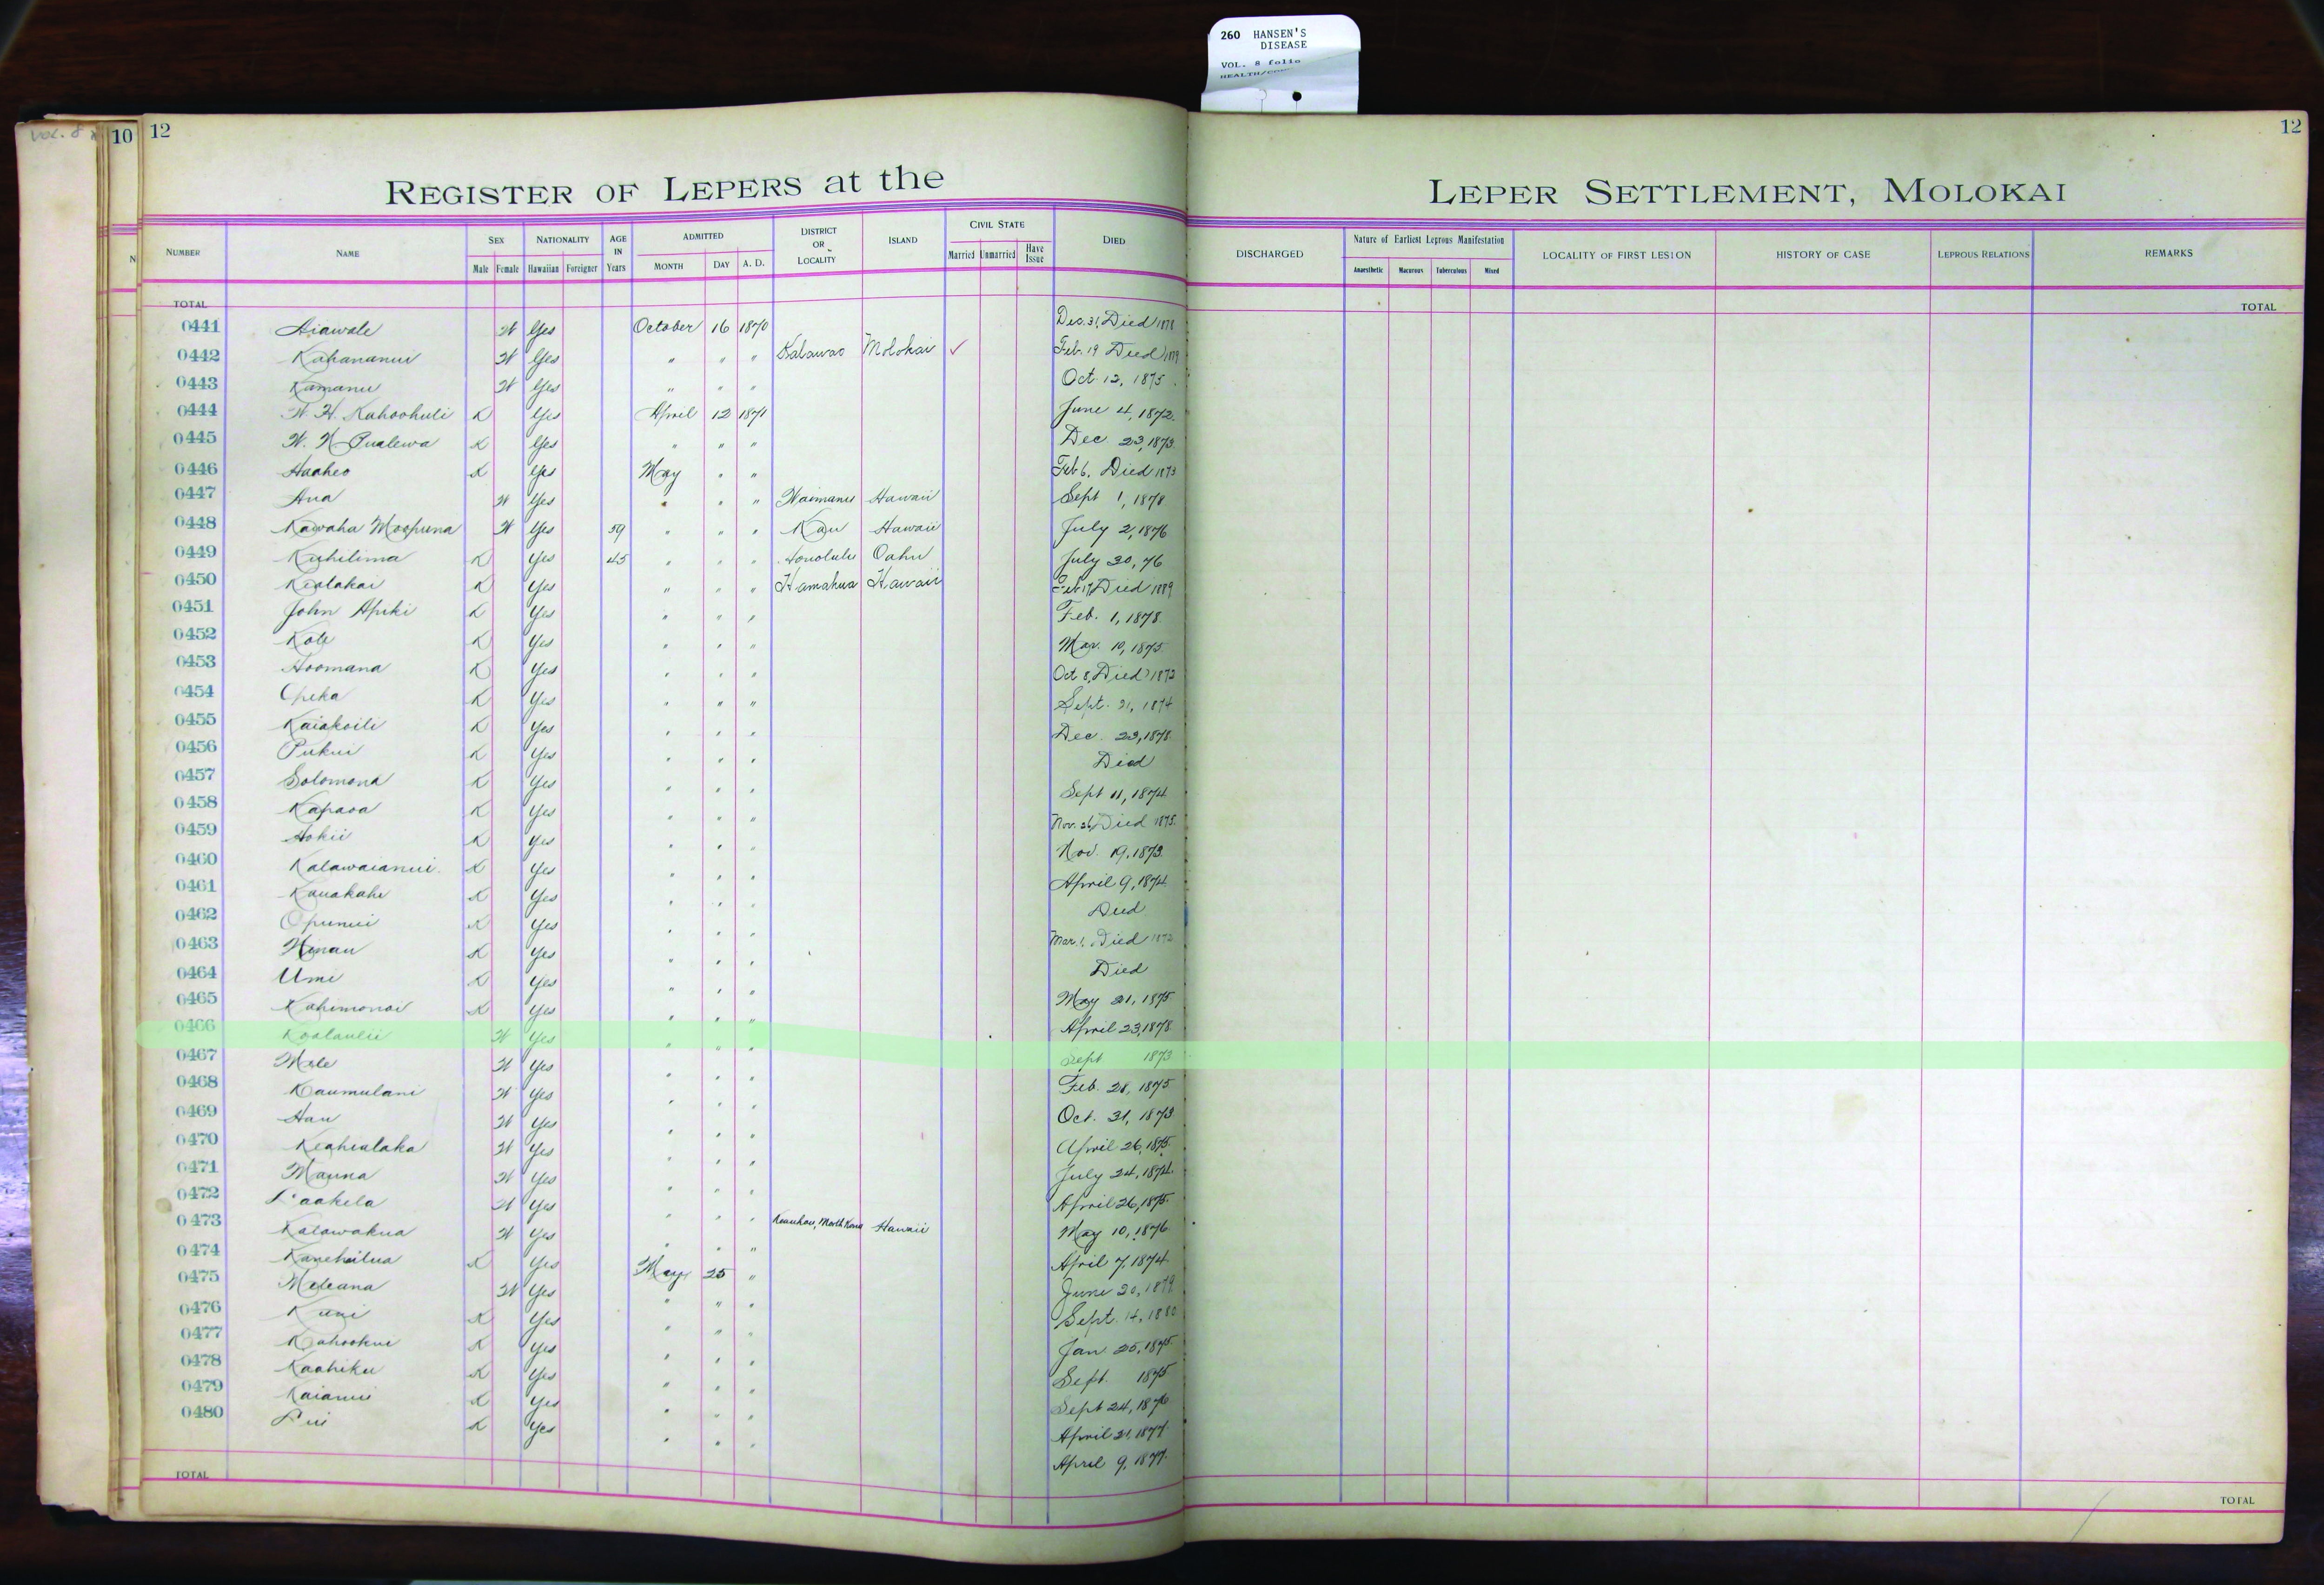 260 HANSEN'S
DISEASE
VOL. 8 folio
VOL. 8
10
12
12
REGISTER OF LEPERS at the LEPER SETTLEMENT, MOLOKAI
NUMBER NAME SEX Male Female NATIONALITY Hawaiian Foreigner AGE IN Years ADMITTED MONTH DAY A. D. DISTRICT OR LOCALITY ISLAND CIVIL STATE Married Unmarried Have Issue DIED DISCHARGED Nature of Earliest Leprous Manifestation Anaesthetic Macurous Tuberculous Mixed LOCALITY OF FIRST LESION HISTORY OF CASE LEPROUS RELATIONS REMARKS
TOTAL TOTAL
0441 Aiawale W Yes October 16 1870 Dec. 31, Died 1878
0442 Kahananui W Yes " " " Kalawao Molokai ✓ Feb. 19 Died
0443 Kamanu W Yes " " " Oct. 12, 1875
0444 W. H. Kahoohuli K Yes April 12 1871 June 4, 1872.
0445 W. N. Pualewa K Yes " " " Dec 23, 1873.
0446 Haaheo K Yes May " " Feb 6, Died 1873
0447 Ana W Yes " " " Waimanu Hawaii Sept 1, 1878
0448 Kawaha Moopuna W Yes 59 " " " Kau Hawaii July 2, 1876
0449 Kuhilima K Yes 45 " " " Honolulu Oahu July 30, 76
0450 Kealakai K Yes " " " Hamakua Hawaii Feb 17, Died 1889
0451 John Apiki K Yes " " " Feb. 1, 1878.
0452 Kole K Yes " " " Mar. 10, 1875.
0453 Hoomana K Yes " " " Oct 8, Died 1873
0454 Opeka K Yes " " " Sept. 21, 1874
0455 Kaiakoili K Yes " " " Dec. 23, 1878.
0456 Pukui K Yes " " " Died
0457 Solomona K Yes " " " Sept 11, 1874
0458 Kapaoa K Yes " " " Nov. 26, Died 1875.
0459 Hokii K Yes " " " Nov. 19, 1873.
0460 Kalawaianui K Yes " " " April 9, 1874
0461 Kauakahi K Yes " " " Died
0462 Opunui K Yes " " " Mar. 1, Died
0463 Hinau K Yes " " " Died
0464 Umi K Yes " " " May 21, 1875
0465 Kahimonai K Yes " " " April 23, 1878.
0466 Koolaulii W Yes " " " Sept 1873
0467 Mele W Yes " " " Feb. 28, 1875
0468 Kaumulani W Yes " " " Oct. 31, 1873
0469 Hau W Yes " " " April 26, 1875.
0470 Keahialaka W Yes " " " July 24, 1874.
0471 Mauna W Yes " " " April 26, 1875.
0472 Laakela W Yes " " " Keauhou, North Kona Hawaii May 10, 1876
0473 Kalawakua W Yes " " " April 7, 1874
0474 Kanehailua K Yes May 25 " June 20, 1879
0475 Meleana W Yes " " " Sept. 14, 1880
0476 Kuni K Yes " " " Jan. 25, 1875.
0477 Kahookui K Yes " " " Sept. 1875
0478 Kaahiku K Yes " " " Sept 24, 1876
0479 Kaianui K Yes " " " April 21, 1877.
0480 Lui K Yes " " " April 9, 1877.
TOTAL TOTAL